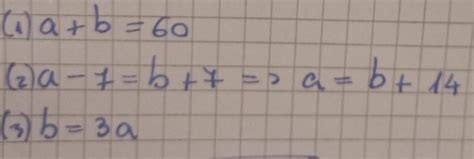 (1) a + b = 60
(2) a - 7 = b + 7 => a = b + 14
(3) b = 3a